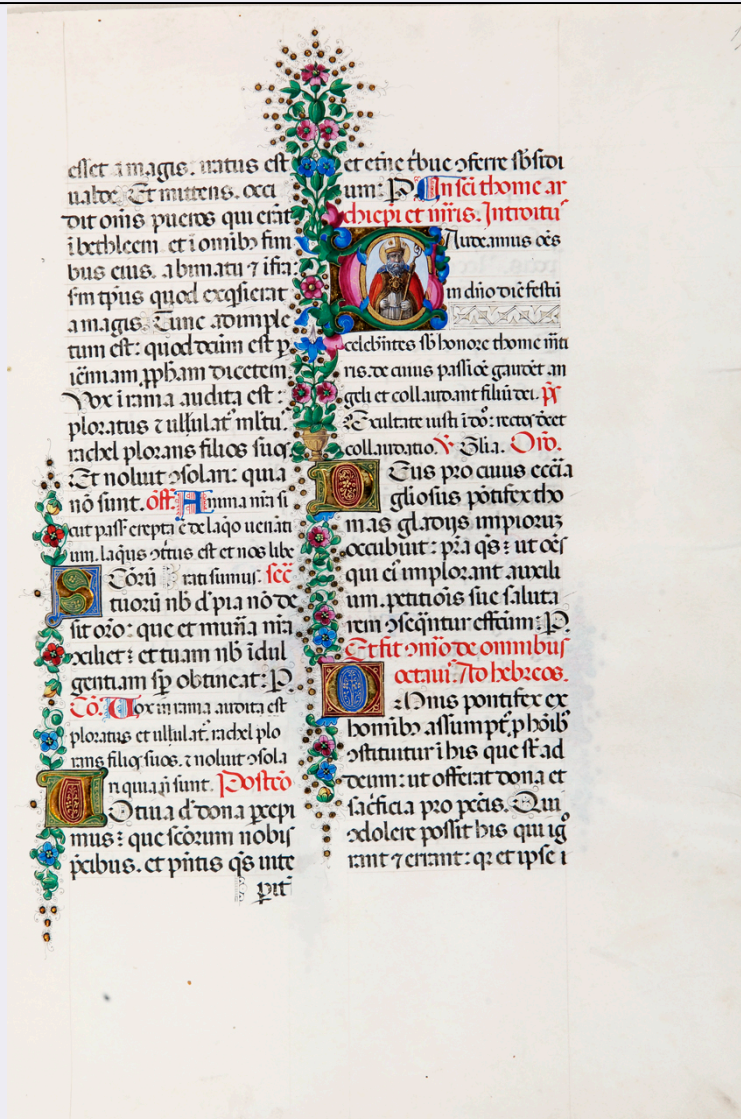 esset a magis. iratus est
ualde. Et mittens. occi
dit om̄s pueros qui erāt
ī bethleem et ī omībꝰ fini
bus eius. a bimatu ⁊ ifra:
sm̄ tp̄us quod exqsierat
a magis. Tunc adimple
tum est: quod dcūm est p
iēmiam ꝓpham dicetem.
Vox ī rama audita est:
ploratus ⁊ ullulatꝰ mltū.
rachel plorans filios suos.
Et noluit ↄsolari: quia
nō sunt. Off. Anima nr̄a si
cut pass̄ erepta ē de laq̄o uenāti
um. laqus ↄtitus est et nos libe
rati sumus. sec̄
Sctōrū
tuorū nb̄ d'pia nō de
sit orō: que et mun̄a nr̄a
ↄciliet: et tuam nb̄ īdul
gentiam sp̄ obtineat: P.
Cō. Vox in rama audita est
ploratus et ullulatꝰ. rachel plo
rans filios suos. ⁊ noluit ↄsola
ri quia n̄ sunt. Postcō
Votiua d' dona p̄cepi
mus: que scōrum nobis
p̄cibus. et pn̄tis qs̄ uite
pit̄
et etn̄e t'bue ↄferre sb̄sidi
um: P. In sc̄i thome ar
chiep̄i et m̄ris. Introitus
Gaudeamus oēs
in dn̄o diē festū
celebn̄tes sb̄ honore thome m̄ti
ris. de cuius passiōe gaudēt an
geli et collaudant filiū dei. p̄s
Exultate iusti ī dō: rectos decet
collaudatio. V Glia. Orō.
Deus pro cuius ecc̄ia
gliosus pōtifex tho
mas gladijs impiorum
occubuit: pr̄a qs̄: ut oēs
qui ei' implorant auxili
um. petitiōis sue saluta
rem ↄseq̄ntur effc̄um: P.
Et fit ↄmō de omnibus
octaui'. Ad hebreos.
Omnis pontifex ex
homībꝰ assumptꝰ. ꝓ hōibꝰ
ↄstituitur ī his que st̄ ad
deum: ut offerat dona et
sac̄ficia pro pccīs. Qui
ↄdolere possit his qui ig
rant ⁊ errant: qr̄ et ipse ī